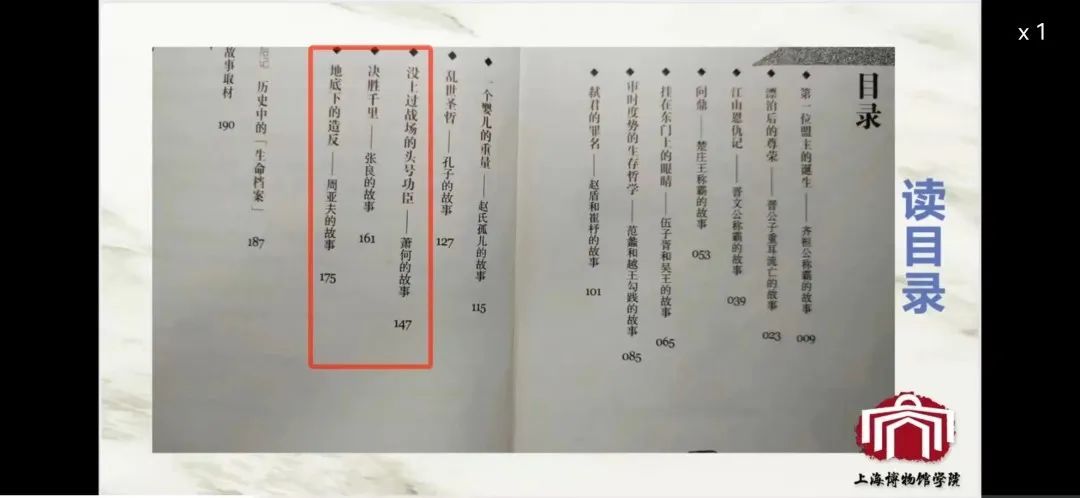 x 1
读目录
目录
第一位盟主的诞生——齐桓公称霸的故事 009
漂泊后的尊荣——晋公子重耳流亡的故事 023
江山恩仇记——晋文公称霸的故事 039
问鼎——楚庄王称霸的故事 053
挂在东门上的眼睛——伍子胥和吴王的故事 065
审时度势的生存哲学——范蠡和越王勾践的故事 085
弑君的罪名——赵盾和崔杼的故事 101
一个婴儿的重量——赵氏孤儿的故事 115
乱世圣哲——孔子的故事 127
没上过战场的头号功臣——萧何的故事 147
决胜千里——张良的故事 161
地底下的造反——周亚夫的故事 175
历史中的「生命档案」 187
故事取材 190
上海博物馆学院